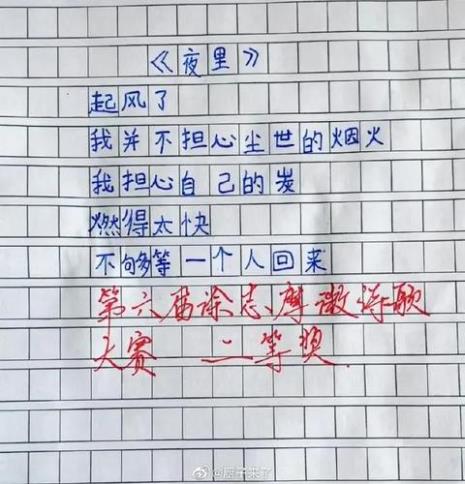 《夜里》
起风了
我并不担心尘世的烟火
我担心自己的炭
燃得太快
不够等一个人回来
第六届徐志摩微诗歌
大赛 二等奖